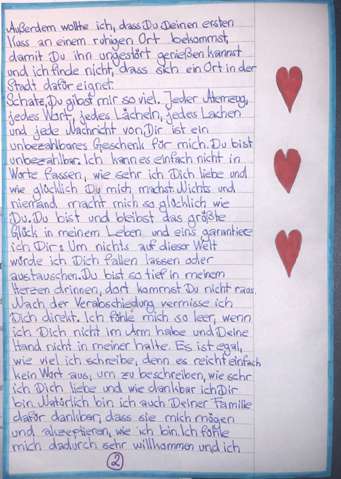 Außerdem wollte ich, dass Du Deinen ersten
Kuss an einem ruhigen Ort bekommst,
damit Du ihn ungestört genießen kannst
und ich finde nicht, dass sich ein Ort in der
Stadt dafür eignet.
Schatz, Du gibst mir so viel. Jeder Atemzug,
jedes Wort, jedes Lächeln, jedes Lachen
und jede Nachricht von Dir ist ein
unbezahlbares Geschenk für mich. Du bist
unbezahlbar. Ich kann es einfach nicht in
Worte fassen, wie sehr ich Dich liebe und
wie glücklich Du mich machst. Nichts und
niemand macht mich so glücklich wie
Du. Du bist und bleibst das größte
Glück in meinem Leben und eins garantiere
ich Dir: Um nichts auf dieser Welt
würde ich Dich fallen lassen oder
austauschen. Du bist so tief in meinem
Herzen drinnen, dort kommst Du nicht raus.
Nach der Verabschiedung vermisse ich
Dich direkt. Ich fühle mich so leer, wenn
ich Dich nicht im Arm habe und Deine
Hand nicht in meiner halte. Es ist egal,
wie viel ich schreibe, denn es reicht einfach
kein Wort aus, um zu beschreiben, wie sehr
ich Dich liebe und wie dankbar ich Dir
bin. Natürlich bin ich auch Deiner Familie
dafür dankbar, dass sie mich mögen
und akzeptieren, wie ich bin. Ich fühle
mich dadurch sehr willkommen und ich
2